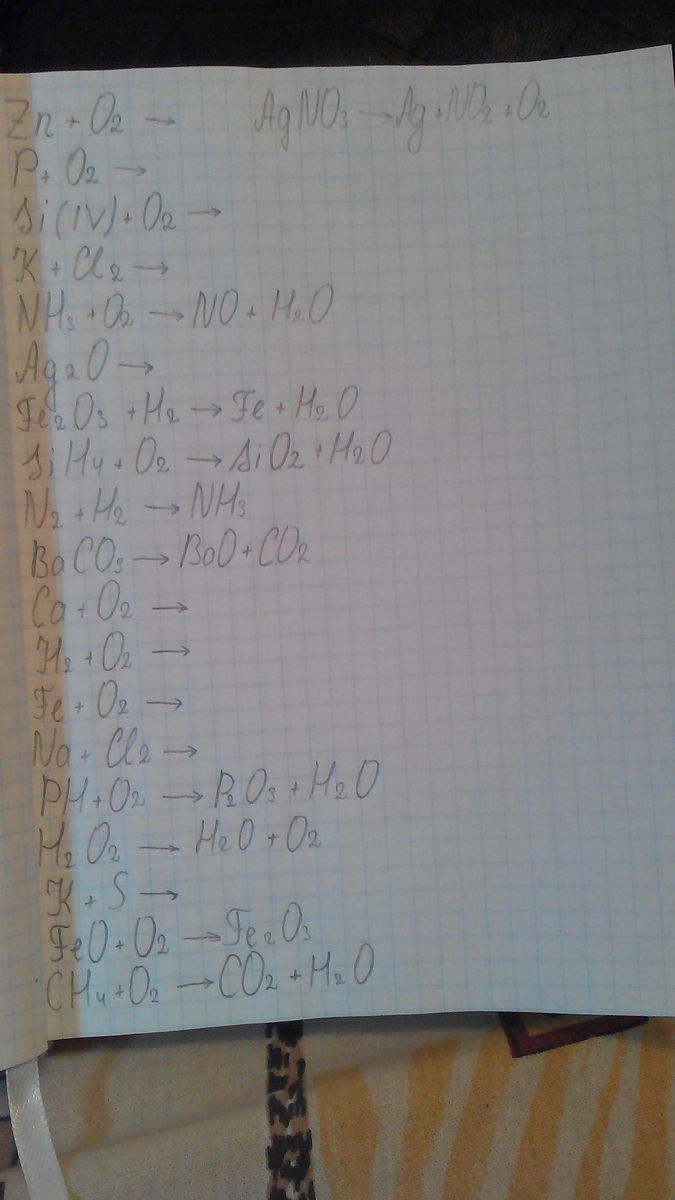 Zn + O2 → AgNO3 → Ag + NO2 + O2
P + O2 →
Si(IV) + O2 →
K + Cl2 →
NH3 + O2 → NO + H2O
Ag2O →
Fe2O3 + H2 → Fe + H2O
SiH4 + O2 → SiO2 + H2O
N2 + H2 → NH3
BaCO3 → BaO + CO2
Ca + O2 →
H2 + O2 →
Fe + O2 →
Na + Cl2 →
PH + O2 → P2O3 + H2O
H2O2 → H2O + O2
K + S →
FeO + O2 → Fe2O3
CH4 + O2 → CO2 + H2O